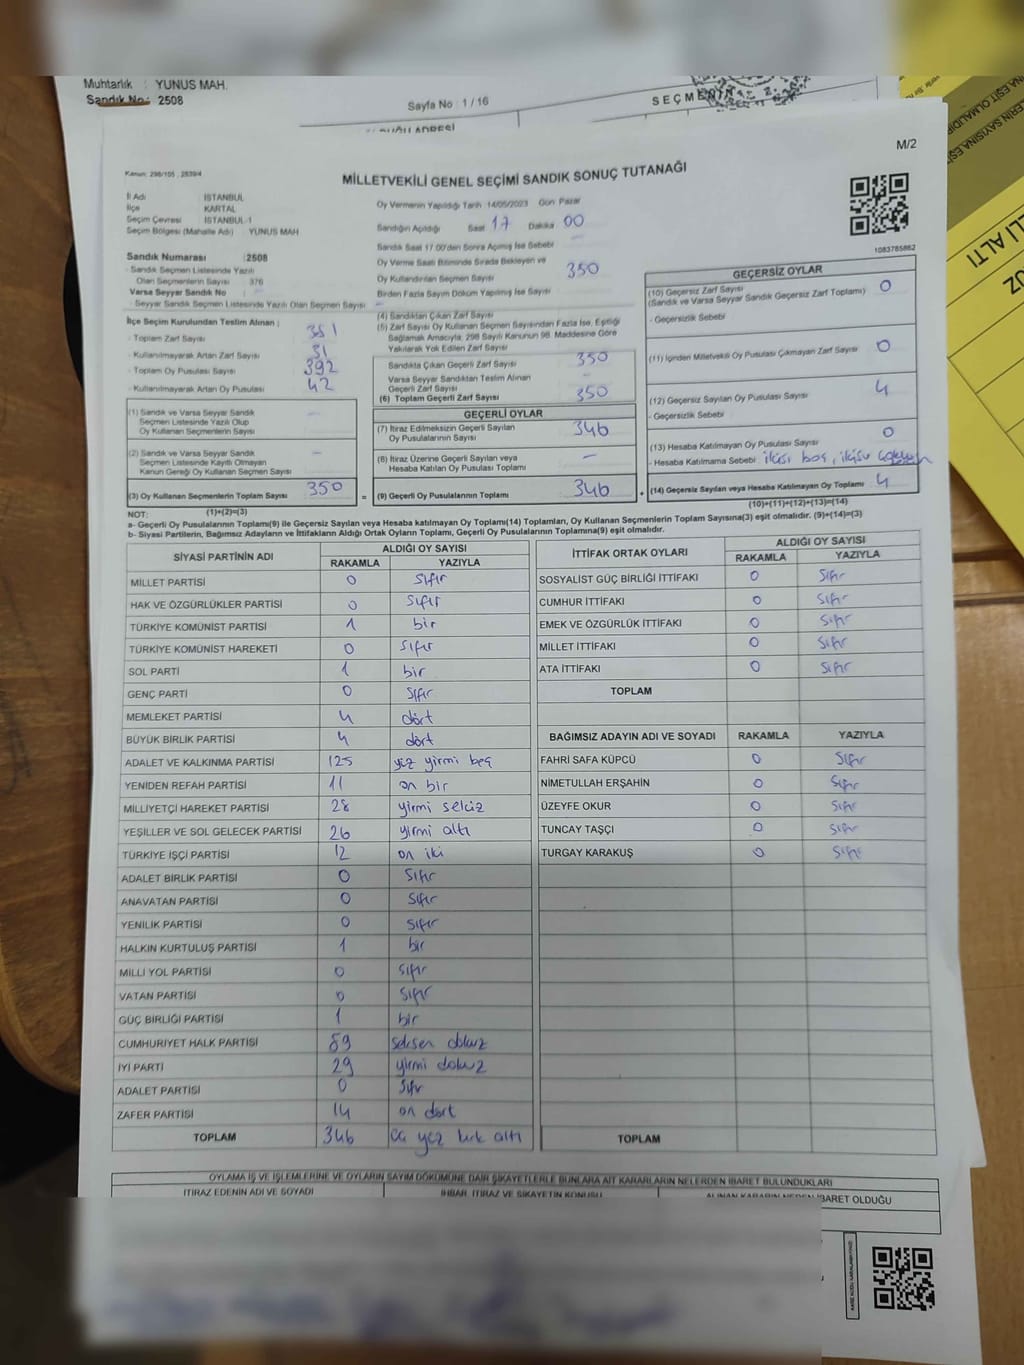 Muhtarlık : YUNUS MAH.
Sandık No : 2508
Sayfa No : 1 / 16
SEÇMENİN
M/2
Kanun: 298/105 , 2839/4
MİLLETVEKİLİ GENEL SEÇİMİ SANDIK SONUÇ TUTANAĞI
İl Adı : İSTANBUL
İlçe : KARTAL
Seçim Çevresi : İSTANBUL-1
Seçim Bölgesi (Mahalle Adı) : YUNUS MAH
Oy Vermenin Yapıldığı Tarih 14/05/2023 Gün Pazar
Sandığın Açıldığı Saat 17 Dakika 00
Sandık Saat 17.00'den Sonra Açılmış İse Sebebi –
Oy Verme Saati Bitiminde Sırada Bekleyen ve
Oy Kullandırılan Seçmen Sayısı 350
Birden Fazla Sayım Döküm Yapılmış İse Sayısı
1083785862
Sandık Numarası :2508
- Sandık Seçmen Listesinde Yazılı
Olan Seçmenlerin Sayısı 376
Varsa Seyyar Sandık No –
- Seyyar Sandık Seçmen Listesinde Yazılı Olan Seçmen Sayısı –
İlçe Seçim Kurulundan Teslim Alınan ;
- Toplam Zarf Sayısı 381
- Kullanılmayarak Artan Zarf Sayısı 31
- Toplam Oy Pusulası Sayısı 392
- Kullanılmayarak Artan Oy Pusulası 42
(1) Sandık ve Varsa Seyyar Sandık
Seçmen Listesinde Yazılı Olup
Oy Kullanan Seçmenlerin Sayısı –
(2) Sandık ve Varsa Seyyar Sandık
Seçmen Listesinde Kayıtlı Olmayan
Kanun Gereği Oy Kullanan Seçmen Sayısı –
(3) Oy Kullanan Seçmenlerin Toplam Sayısı 350 =
(1)+(2)=(3)
(4) Sandıktan Çıkan Zarf Sayısı
(5) Zarf Sayısı Oy Kullanan Seçmen Sayısından Fazla İse, Eşitliği
Sağlamak Amacıyla; 298 Sayılı Kanunun 98. Maddesine Göre
Yakılarak Yok Edilen Zarf Sayısı
Sandıkta Çıkan Geçerli Zarf Sayısı 350
Varsa Seyyar Sandıktan Teslim Alınan
Geçerli Zarf Sayısı –
(6) Toplam Geçerli Zarf Sayısı 350
GEÇERLİ OYLAR
(7) İtiraz Edilmeksizin Geçerli Sayılan
Oy Pusulalarının Sayısı 346
(8) İtiraz Üzerine Geçerli Sayılan veya
Hesaba Katılan Oy Pusulası Toplamı –
(9) Geçerli Oy Pusulalarının Toplamı 346 +
GEÇERSİZ OYLAR
(10) Geçersiz Zarf Sayısı 0
(Sandık ve Varsa Seyyar Sandık Geçersiz Zarf Toplamı)
- Geçersizlik Sebebi
(11) İçinden Milletvekili Oy Pusulası Çıkmayan Zarf Sayısı 0
(12) Geçersiz Sayılan Oy Pusulası Sayısı 4
- Geçersizlik Sebebi
(13) Hesaba Katılmayan Oy Pusulası Sayısı 0
- Hesaba Katılmama Sebebi ikisi boş, ikisi
(14) Geçersiz Sayılan veya Hesaba Katılmayan Oy Toplamı 4
(10)+(11)+(12)+(13)=(14)
NOT:
a- Geçerli Oy Pusulalarının Toplamı(9) ile Geçersiz Sayılan veya Hesaba katılmayan Oy Toplamı(14) Toplamları, Oy Kullanan Seçmenlerin Toplam Sayısına(3) eşit olmalıdır. (9)+(14)=(3)
b- Siyasi Partilerin, Bağımsız Adayların ve İttifakların Aldığı Ortak Oyların Toplamı, Geçerli Oy Pusulalarının Toplamına(9) eşit olmalıdır.
SİYASİ PARTİNİN ADI ALDIĞI OY SAYISI
RAKAMLA YAZIYLA
MİLLET PARTİSİ 0 sıfır
HAK VE ÖZGÜRLÜKLER PARTİSİ 0 sıfır
TÜRKİYE KOMÜNİST PARTİSİ 1 bir
TÜRKİYE KOMÜNİST HAREKETİ 0 sıfır
SOL PARTİ 1 bir
GENÇ PARTİ 0 sıfır
MEMLEKET PARTİSİ 4 dört
BÜYÜK BİRLİK PARTİSİ 4 dört
ADALET VE KALKINMA PARTİSİ 125 yüz yirmi beş
YENİDEN REFAH PARTİSİ 11 on bir
MİLLİYETÇİ HAREKET PARTİSİ 28 yirmi sekiz
YEŞİLLER VE SOL GELECEK PARTİSİ 26 yirmi altı
TÜRKİYE İŞÇİ PARTİSİ 12 on iki
ADALET BİRLİK PARTİSİ 0 sıfır
ANAVATAN PARTİSİ 0 sıfır
YENİLİK PARTİSİ 0 sıfır
HALKIN KURTULUŞ PARTİSİ 1 bir
MİLLİ YOL PARTİSİ 0 sıfır
VATAN PARTİSİ 0 sıfır
GÜÇ BİRLİĞİ PARTİSİ 1 bir
CUMHURİYET HALK PARTİSİ 89 seksen dokuz
İYİ PARTİ 29 yirmi dokuz
ADALET PARTİSİ 0 sıfır
ZAFER PARTİSİ 14 on dört
TOPLAM 346 üç yüz kırk altı
İTTİFAK ORTAK OYLARI ALDIĞI OY SAYISI
RAKAMLA YAZIYLA
SOSYALİST GÜÇ BİRLİĞİ İTTİFAKI 0 sıfır
CUMHUR İTTİFAKI 0 sıfır
EMEK VE ÖZGÜRLÜK İTTİFAKI 0 sıfır
MİLLET İTTİFAKI 0 sıfır
ATA İTTİFAKI 0 sıfır
TOPLAM
BAĞIMSIZ ADAYIN ADI VE SOYADI RAKAMLA YAZIYLA
FAHRİ SAFA KÜPCÜ 0 sıfır
NİMETULLAH ERŞAHİN 0 sıfır
ÜZEYFE OKUR 0 sıfır
TUNCAY TAŞÇI 0 sıfır
TURGAY KARAKUŞ 0 sıfır
TOPLAM
OYLAMA İŞ VE İŞLEMLERİNE VE OYLARIN SAYIM DÖKÜMÜNE DAİR ŞİKAYETLERLE BUNLARA AİT KARARLARIN NELERDEN İBARET BULUNDUKLARI
İTİRAZ EDENİN ADI VE SOYADI İHBAR, İTİRAZ VE ŞİKAYETİN KONUSU ALINAN KARARIN NEDEN İBARET OLDUĞU